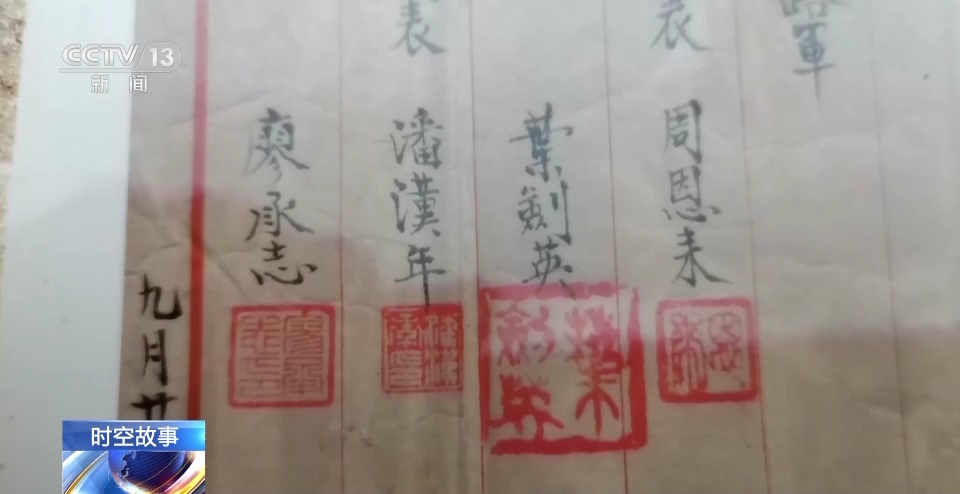 CCTV 13
新闻
路軍
表
周恩来
葉劍英
葉劍英
表
潘漢年
廖承志
九月廿
时空故事